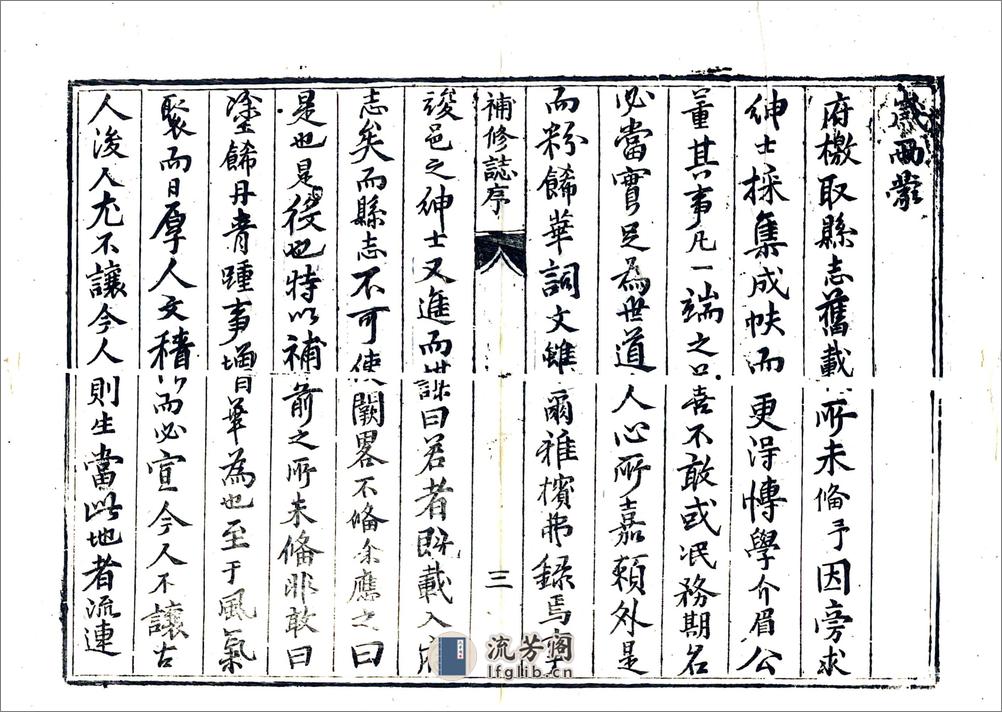 歲丙
府檄取縣志舊載所未俻予因旁求
紳士採集成帙而更淂博學介眉公
董其事凡一端之可喜不敢或泯務期名
必當實足為世道人心所嘉賴外是
而粉餙華詞文雖爾雅擯弗錄焉事
補修誌序
三
竣邑之紳士又進而謀曰君者既載入府
志矣而縣志不可使闕畧不俻余應之曰
是也是役也特以補前之所未俻非敢曰
塗餙丹青踵事增華為也至于風氣
聚而日厚人文積以而必宣今人不讓古
人後人尤不讓今人則生當此地者流連
流芳阁
lfglib.cn